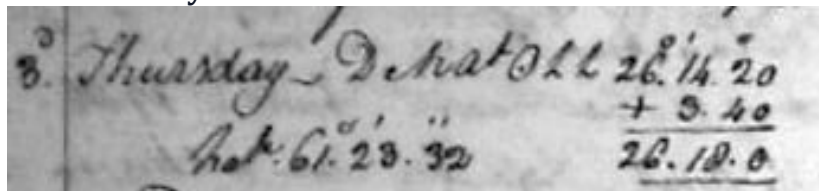 3.d Thursday – D Mer.t Alt. ☉ L L 26.° 14.' 20"
+ 3. 40
Lat.de 61.° 23.' 32" 26. 18. 0